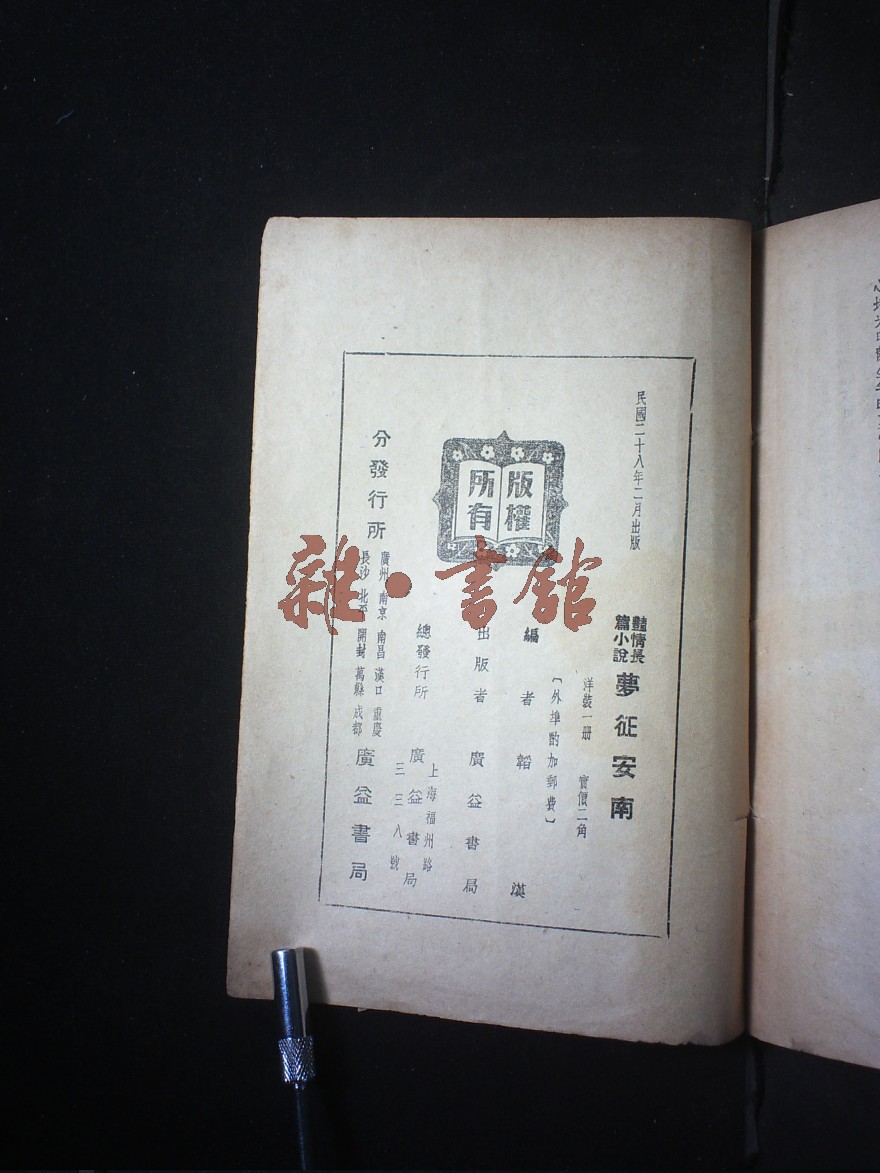 民國二十八年二月出版
豔情長
篇小說
夢征安南
洋裝一册 實價二角
〔外埠酌加郵費〕
版權
所有
編者 韜漢
出版者 廣益書局
總發行所 廣益書局
上海福州路
三三八號
分發行所 廣益書局
廣州 南京 南昌 漢口 重慶
長沙 北平 開封 萬縣 成都
雜·書館